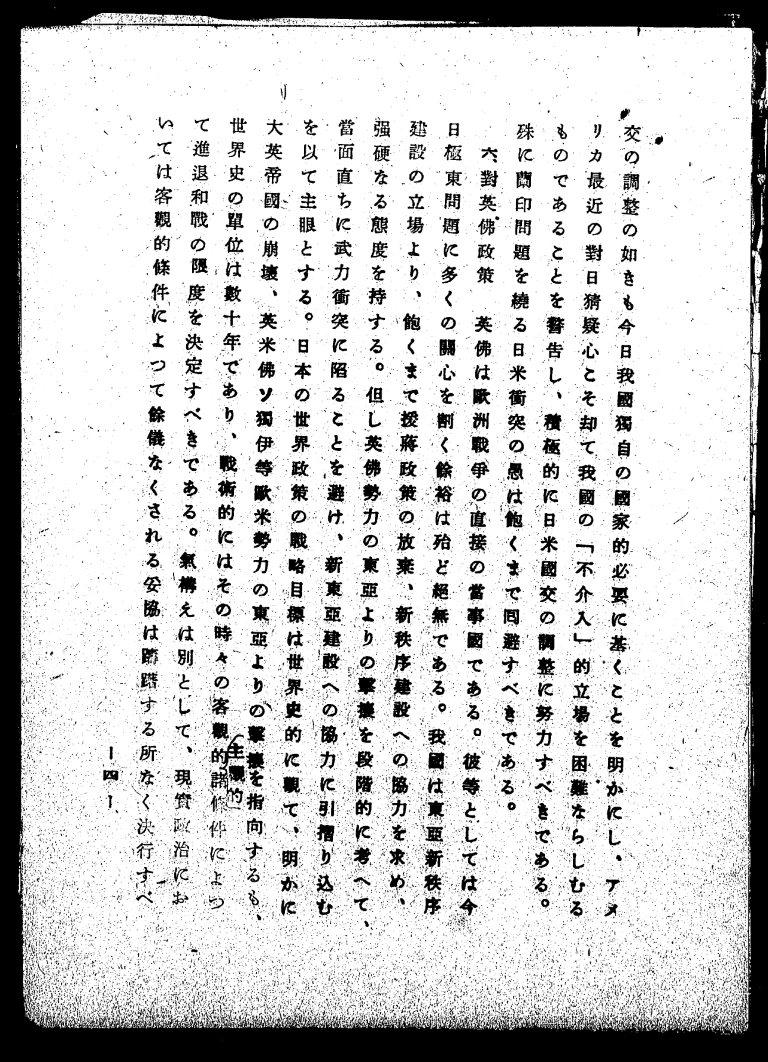 交の調整の如きも今日我國獨自の國家的必要に基くことを明かにし、アメ
リカ最近の對日猜疑心こそ却て我國の「不介入」的立場を困難ならしむる
ものであることを警告し、積極的に日米國交の調整に努力すべきである。
殊に蘭印問題を繞る日米衝突の愚は飽くまで囘避すべきである。
六、對英佛政策　英佛は歐洲戰爭の直接の當事國である。彼等としては今
日極東問題に多くの關心を割く餘裕は殆ど絕無である。我國は東亞新秩序
建設の立場より、飽くまで援蔣政策の放棄、新秩序建設への協力を求め、
强硬なる態度を持する。但し英佛勢力の東亞よりの擊攘を段階的に考へて、
當面直ちに武力衝突に陷ることを避け、新東亞建設への協力に引摺り込む
を以て主眼とする。日本の世界政策の戰略目標は世界史的に觀て、明かに
大英帝國の崩壞、英米佛ソ獨伊等歐米勢力の東亞よりの擊攘を指向するも、
世界史の單位は數十年であり、戰術的にはその時々の客觀的（主觀的）諸條件によつ
て進退和戰の限度を決定すべきである。氣構えは別として、現實政治にお
いては客觀的條件によつて餘儀なくされる妥協は躊躇する所なく決行すべ
ー四ー